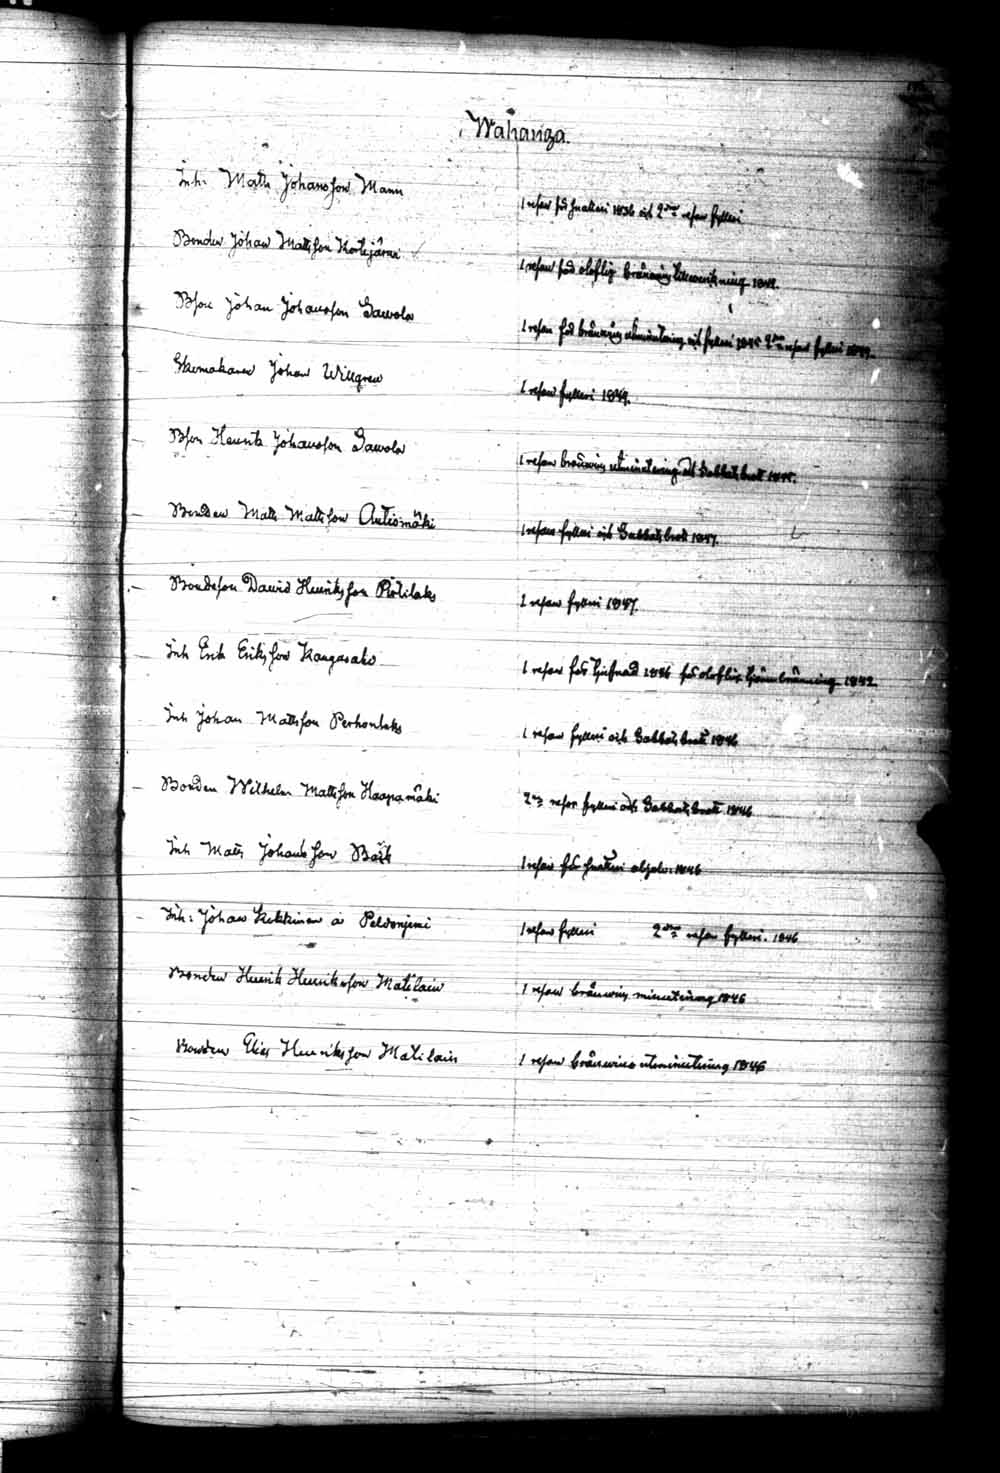 Wahanga.
Inh. Matts Johansson Mann 1 resan för snatteri 1836 och 2dra resan fylleri
Bonden Johan Mattsson Kortejärvi 1 resan för oloflig bränvins tillverkning 1842.
Bson Johan Johansson Sawola 1 resan för bränvins utminutering och fylleri 1845 2dra resan fylleri 1849.
Skomakaren Johan Willgren 1 resan fylleri 1849.
Bson Henrik Johansson Sawola 1 resan bränvins utminutering och Sabbatsbrott 1845.
Bonden Matts Mattsson Autiomäki 1 resan fylleri och Sabbatsbrott 1847.
Bondeson David Henriksson 1 resan fylleri 1847.
Inh Erik Eriksson Kangasaho 1 resan för tjufnad 1836 för oloflig bränning 1842
Inh Johan Mattsson Perhonlaks 1 resan fylleri och Sabbatsbrott 1846
Bonden Wilhelm Mattsson Haapamäki 2dra resan fylleri och Sabbatsbrott 1846
Inh Matts Johansson Bäck 1 resan för snatteri 1846
Inh: Johan Kekkinen å Peldoniemi 1 resan fylleri 2dra resan fylleri. 1846
Bonden Henrik Henriksson Matilain 1 resan bränvins minutering 1846
Bonden Elias Henriksson Matilain 1 resan bränvins utminutering 1846